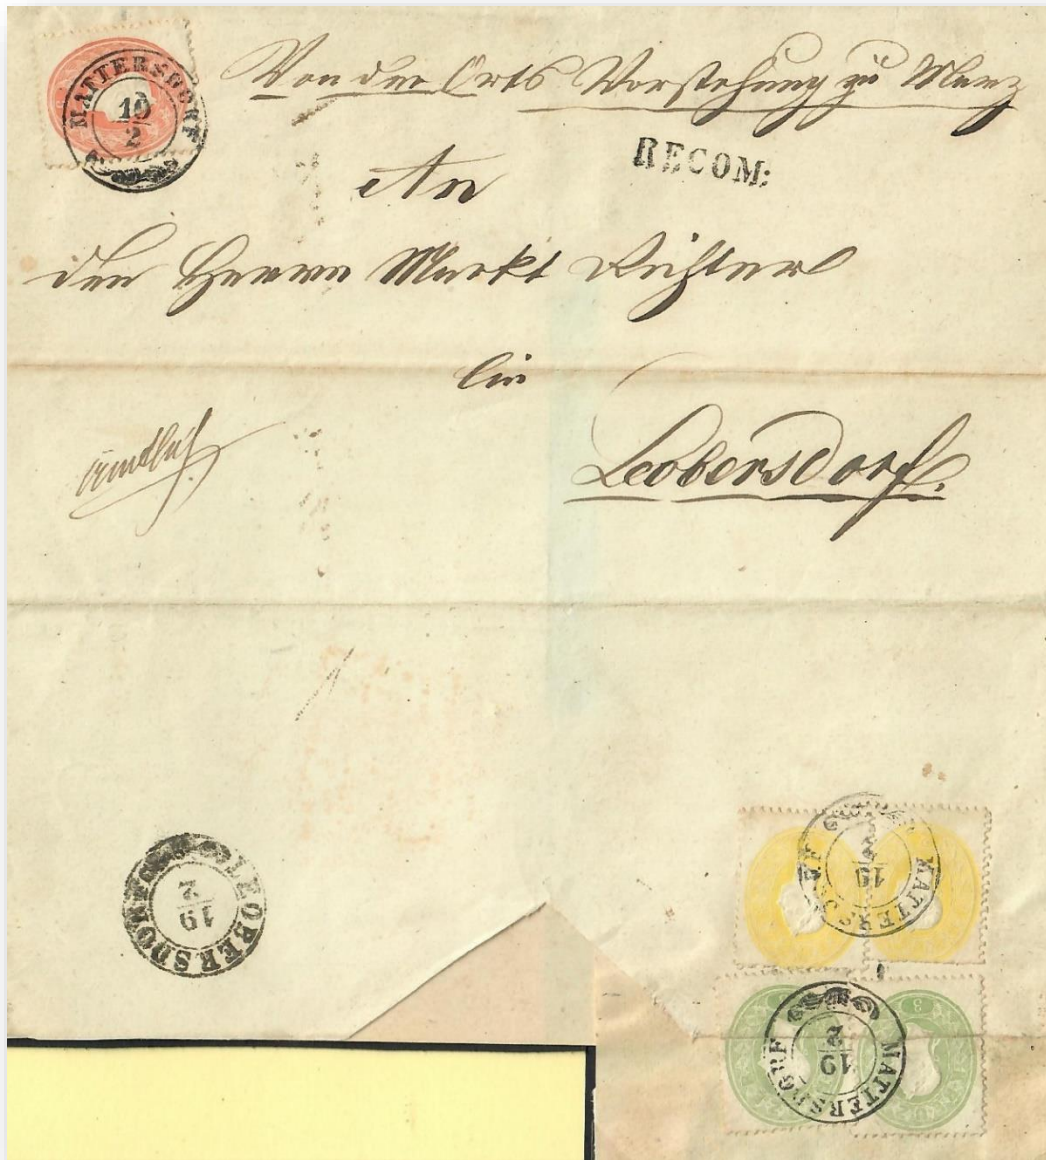 MATTERSDORF
19
2
Von der Orts Vorstehung zu Marz
RECOM:
An
den Herrn Markt Richter
in
Leobersdorf.
LEOBERSDORF
19
2
MATTERSDORF
19
2
MATTERSDORF
19
2
3
3